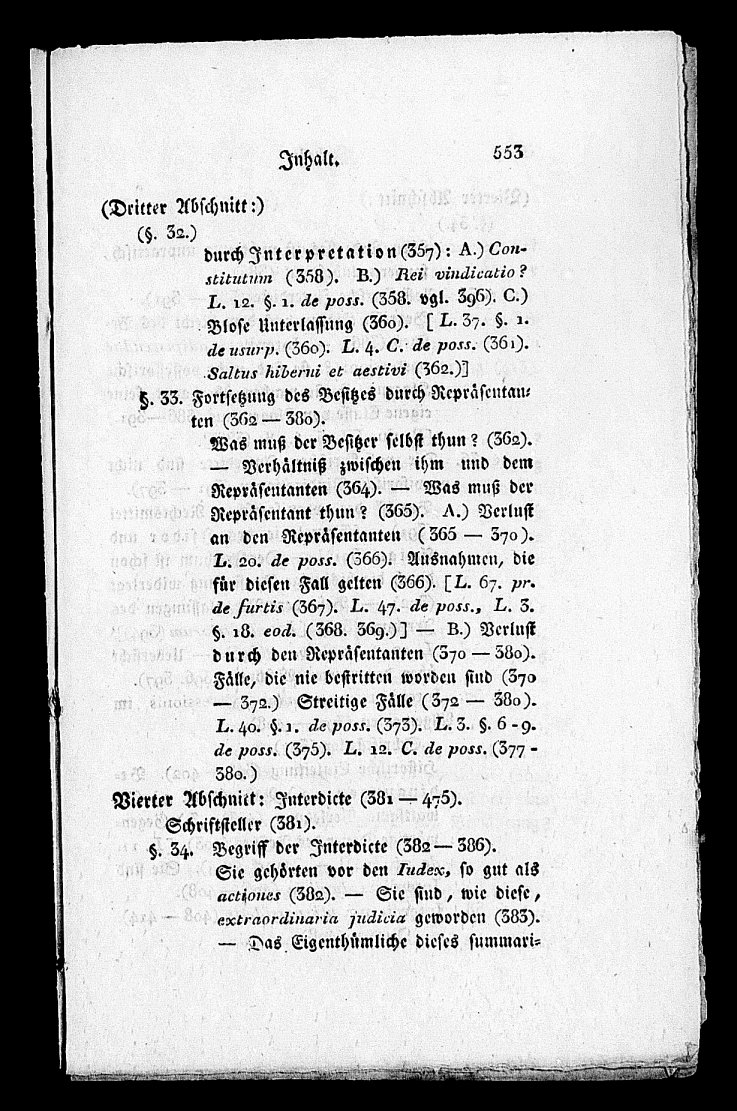 Inhalt. 553
(Dritter Abschnitt:)
(§. 32.)
durch Interpretation (357): A.) Con-
stitutum (358). B.) Rei vindicatio?
L. 12. §. 1. de poss. (358. vgl. 396). C.)
Blose Unterlassung (360). [L. 37. §. 1.
de usurp. (360). L. 4. C. de poss. (361).
Saltus hiberni et aestivi (362.)]
§. 33. Fortsetzung des Besitzes durch Repräsentan-
ten (362 — 380).
Was muß der Besitzer selbst thun? (362).
— Verhältniß zwischen ihm und dem
Repräsentanten (364). — Was muß der
Repräsentant thun? (365). A.) Verlust
an den Repräsentanten (365 — 370).
L. 20. de poss. (366). Ausnahmen, die
für diesen Fall gelten (366). [L. 67. pr.
de furtis (367). L. 47. de poss., L. 3.
§. 18. eod. (368. 369.)] — B.) Verlust
durch den Repräsentanten (370 — 380).
Fälle, die nie bestritten worden sind (370
— 372.) Streitige Fälle (372 — 380).
L. 40. §. 1. de poss. (373). L. 3. §. 6 - 9.
de poss. (375). L. 12. C. de poss. (377 -
380.)
Vierter Abschnitt: Interdicte (381 — 475).
Schriftsteller (381).
§. 34. Begriff der Interdicte (382 — 386).
Sie gehörten vor den Iudex, so gut als
actiones (382). — Sie sind, wie diese,
extraordinaria judicia geworden (383).
— Das Eigenthümliche dieses summari-